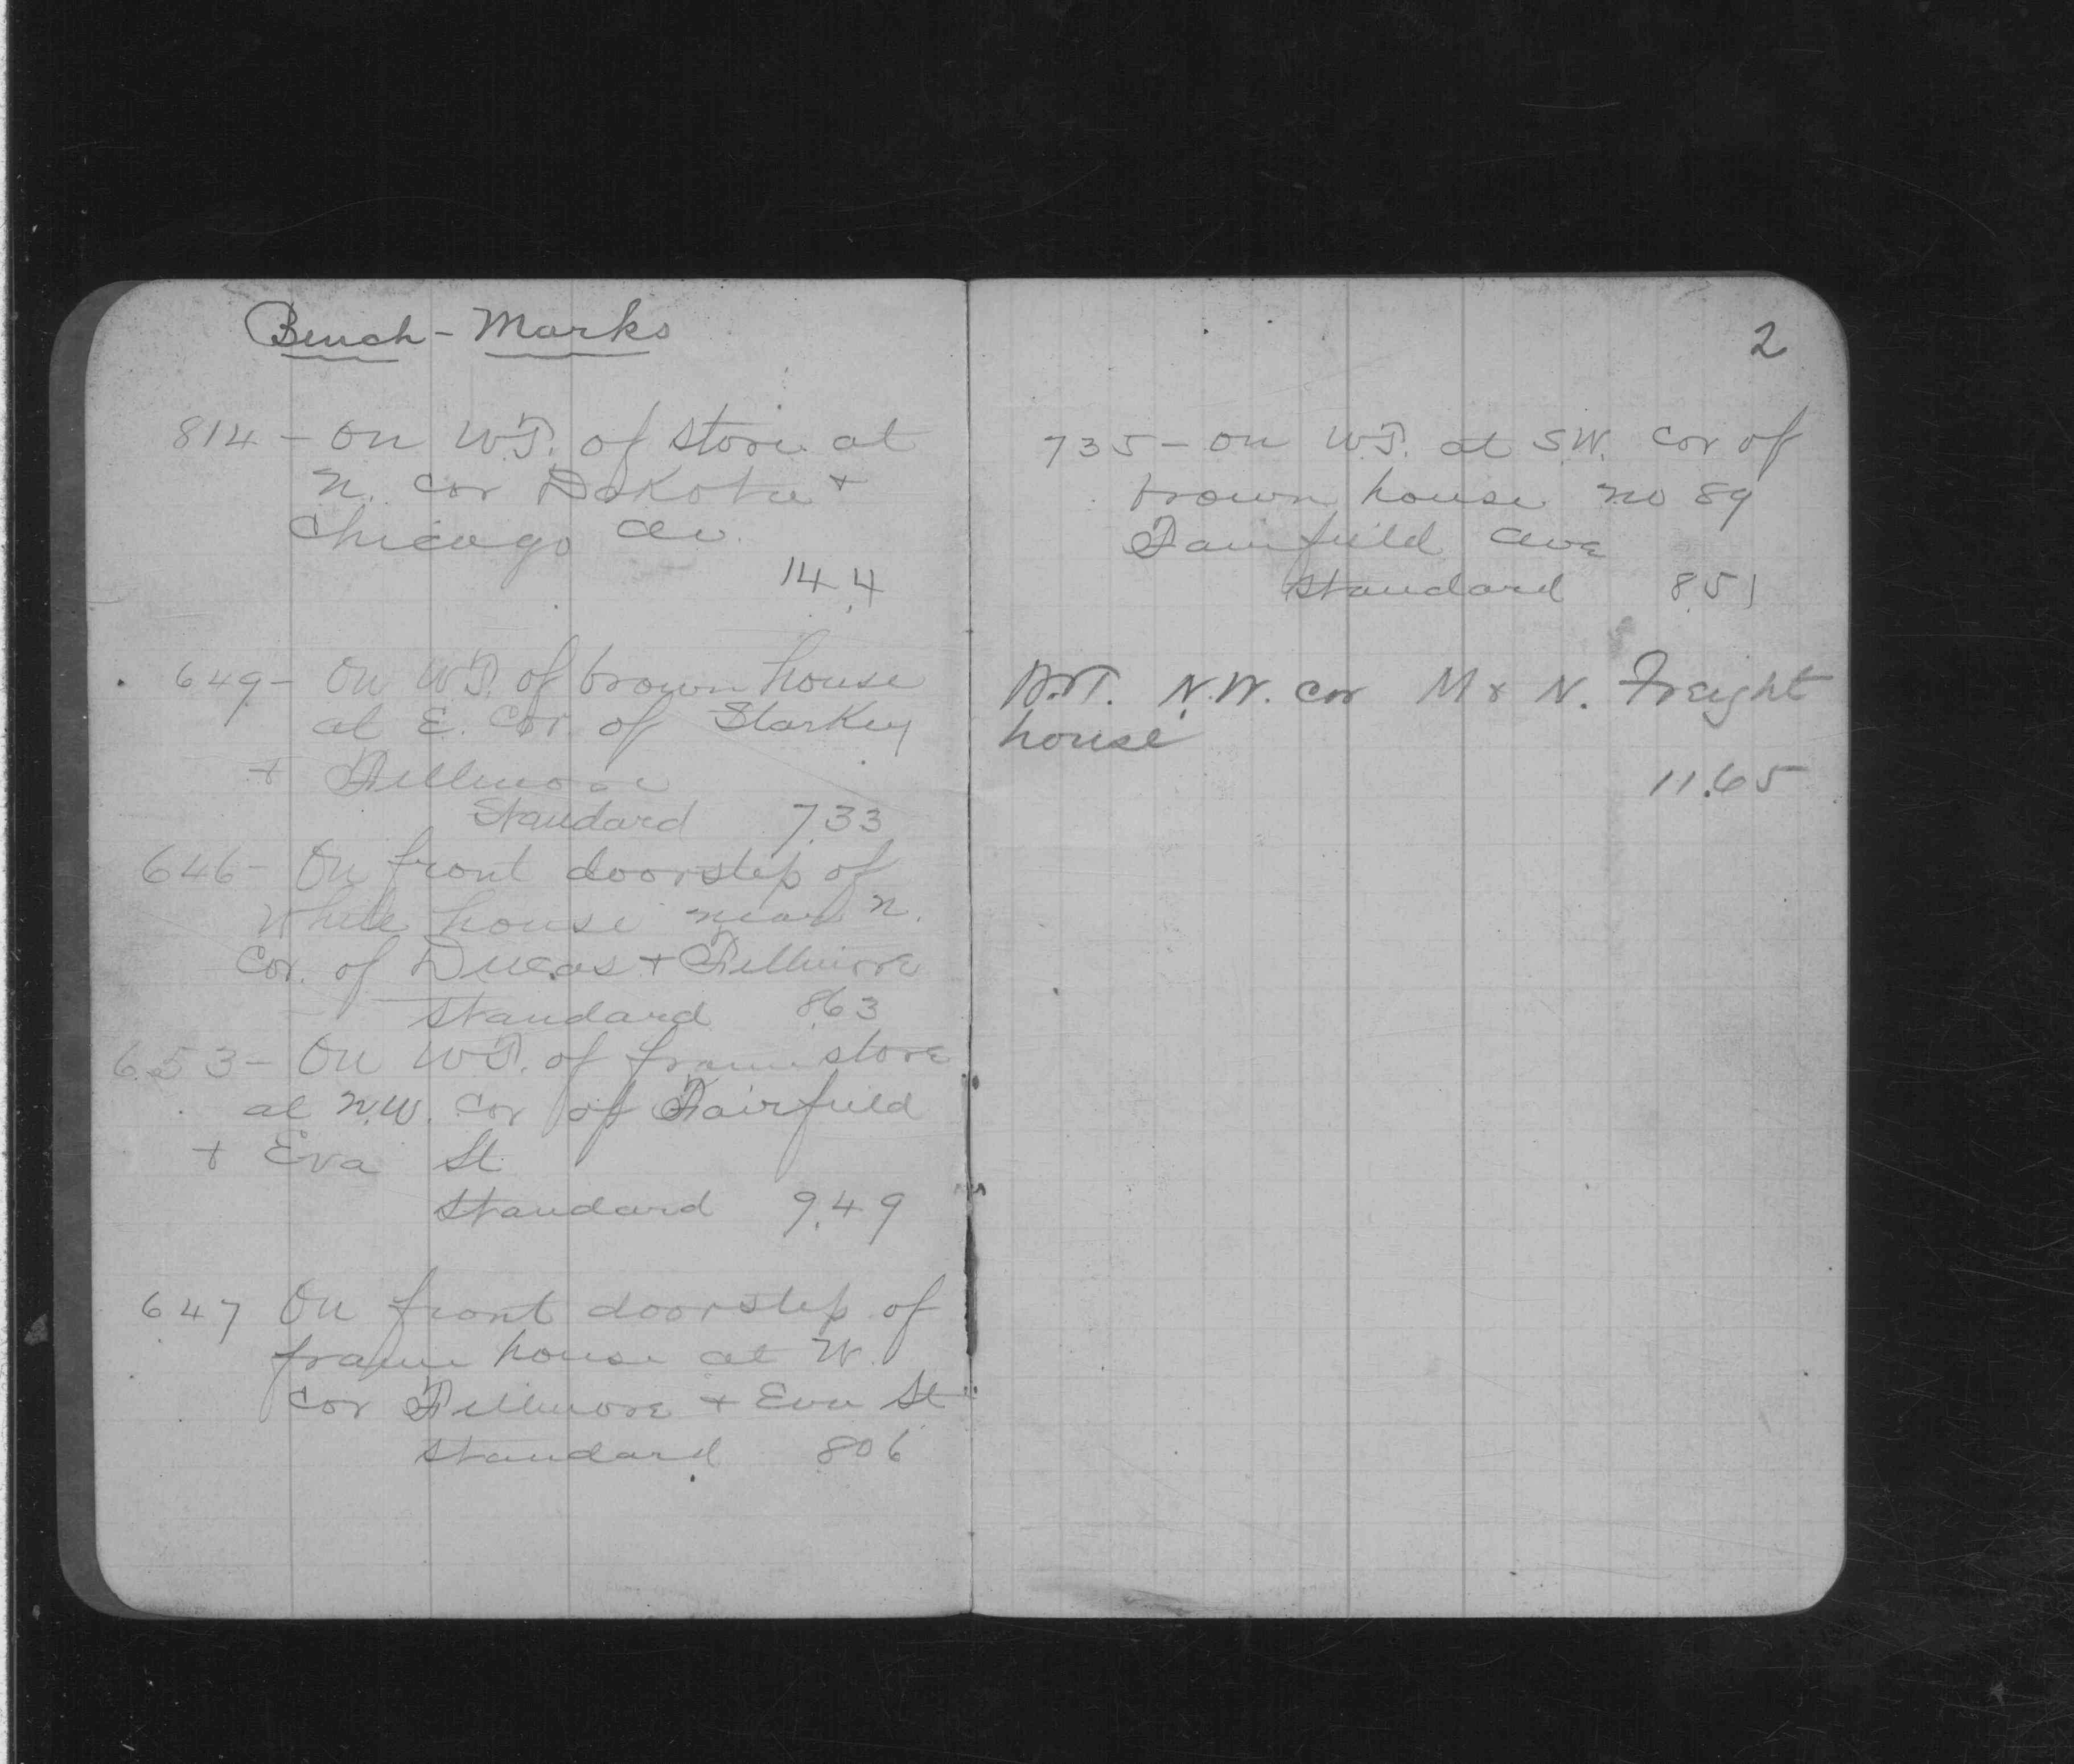 Bench-Marks
814 - On W.T. of store at
N. cor Dakota +
Chicago Av.
14.4
649 - On W.T. of brown house
at E. Cor. of Starkey
+ Fillmore
Standard 7.33
646 - On front doorstep of
White house near N.
Cor. of Ducas + Fillmore
Standard 8.63
653 - On W.T. of frame store
at N.W. Cor of Fairfield
+ Eva St
Standard 9.49
647 On front doorstep of
frame house at W.
Cor Fillmore + Eva St
Standard 8.06
2
735 - On W.T. at S.W. Cor of
brown house No 89
Fairfield Ave
Standard 8.51
N.W. cor M & N. Freight
house
11.65